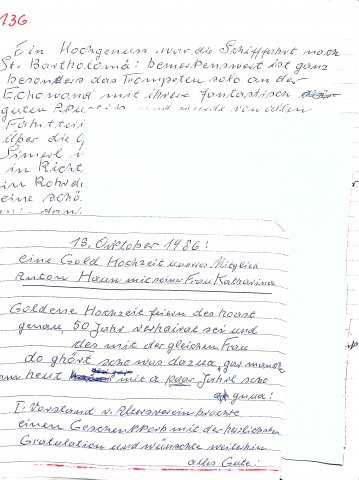 136
Ein Hochgenuss war die Schifffahrt nach
St. Bartholomä: bemerkenswert ist ganz
besonders das Trompeten solo an der
Echowand mit ihrere fantastisch
guten und wurde von allen
Fahrt
über die
Simerl
in Richt
in Rohrd
eine schö
13. Oktober 1986:
eine Gold Hochzeit unsres Mitglied
Anton Haun mit seiner Frau Katharina
Goldene Hochzeit feiern des hoast
genau, 50 Jahr verheirat sei und
des mit der gleichen Frau
do ghört scho was dazua, gar manche
heut mit a paar Jahrl scho
gnua!
I. Vorstand v. Altersverein brachte
einen Geschenkkorb mit der herzlichsten
Gratulation und wünschte weiterhin
alles Gute!